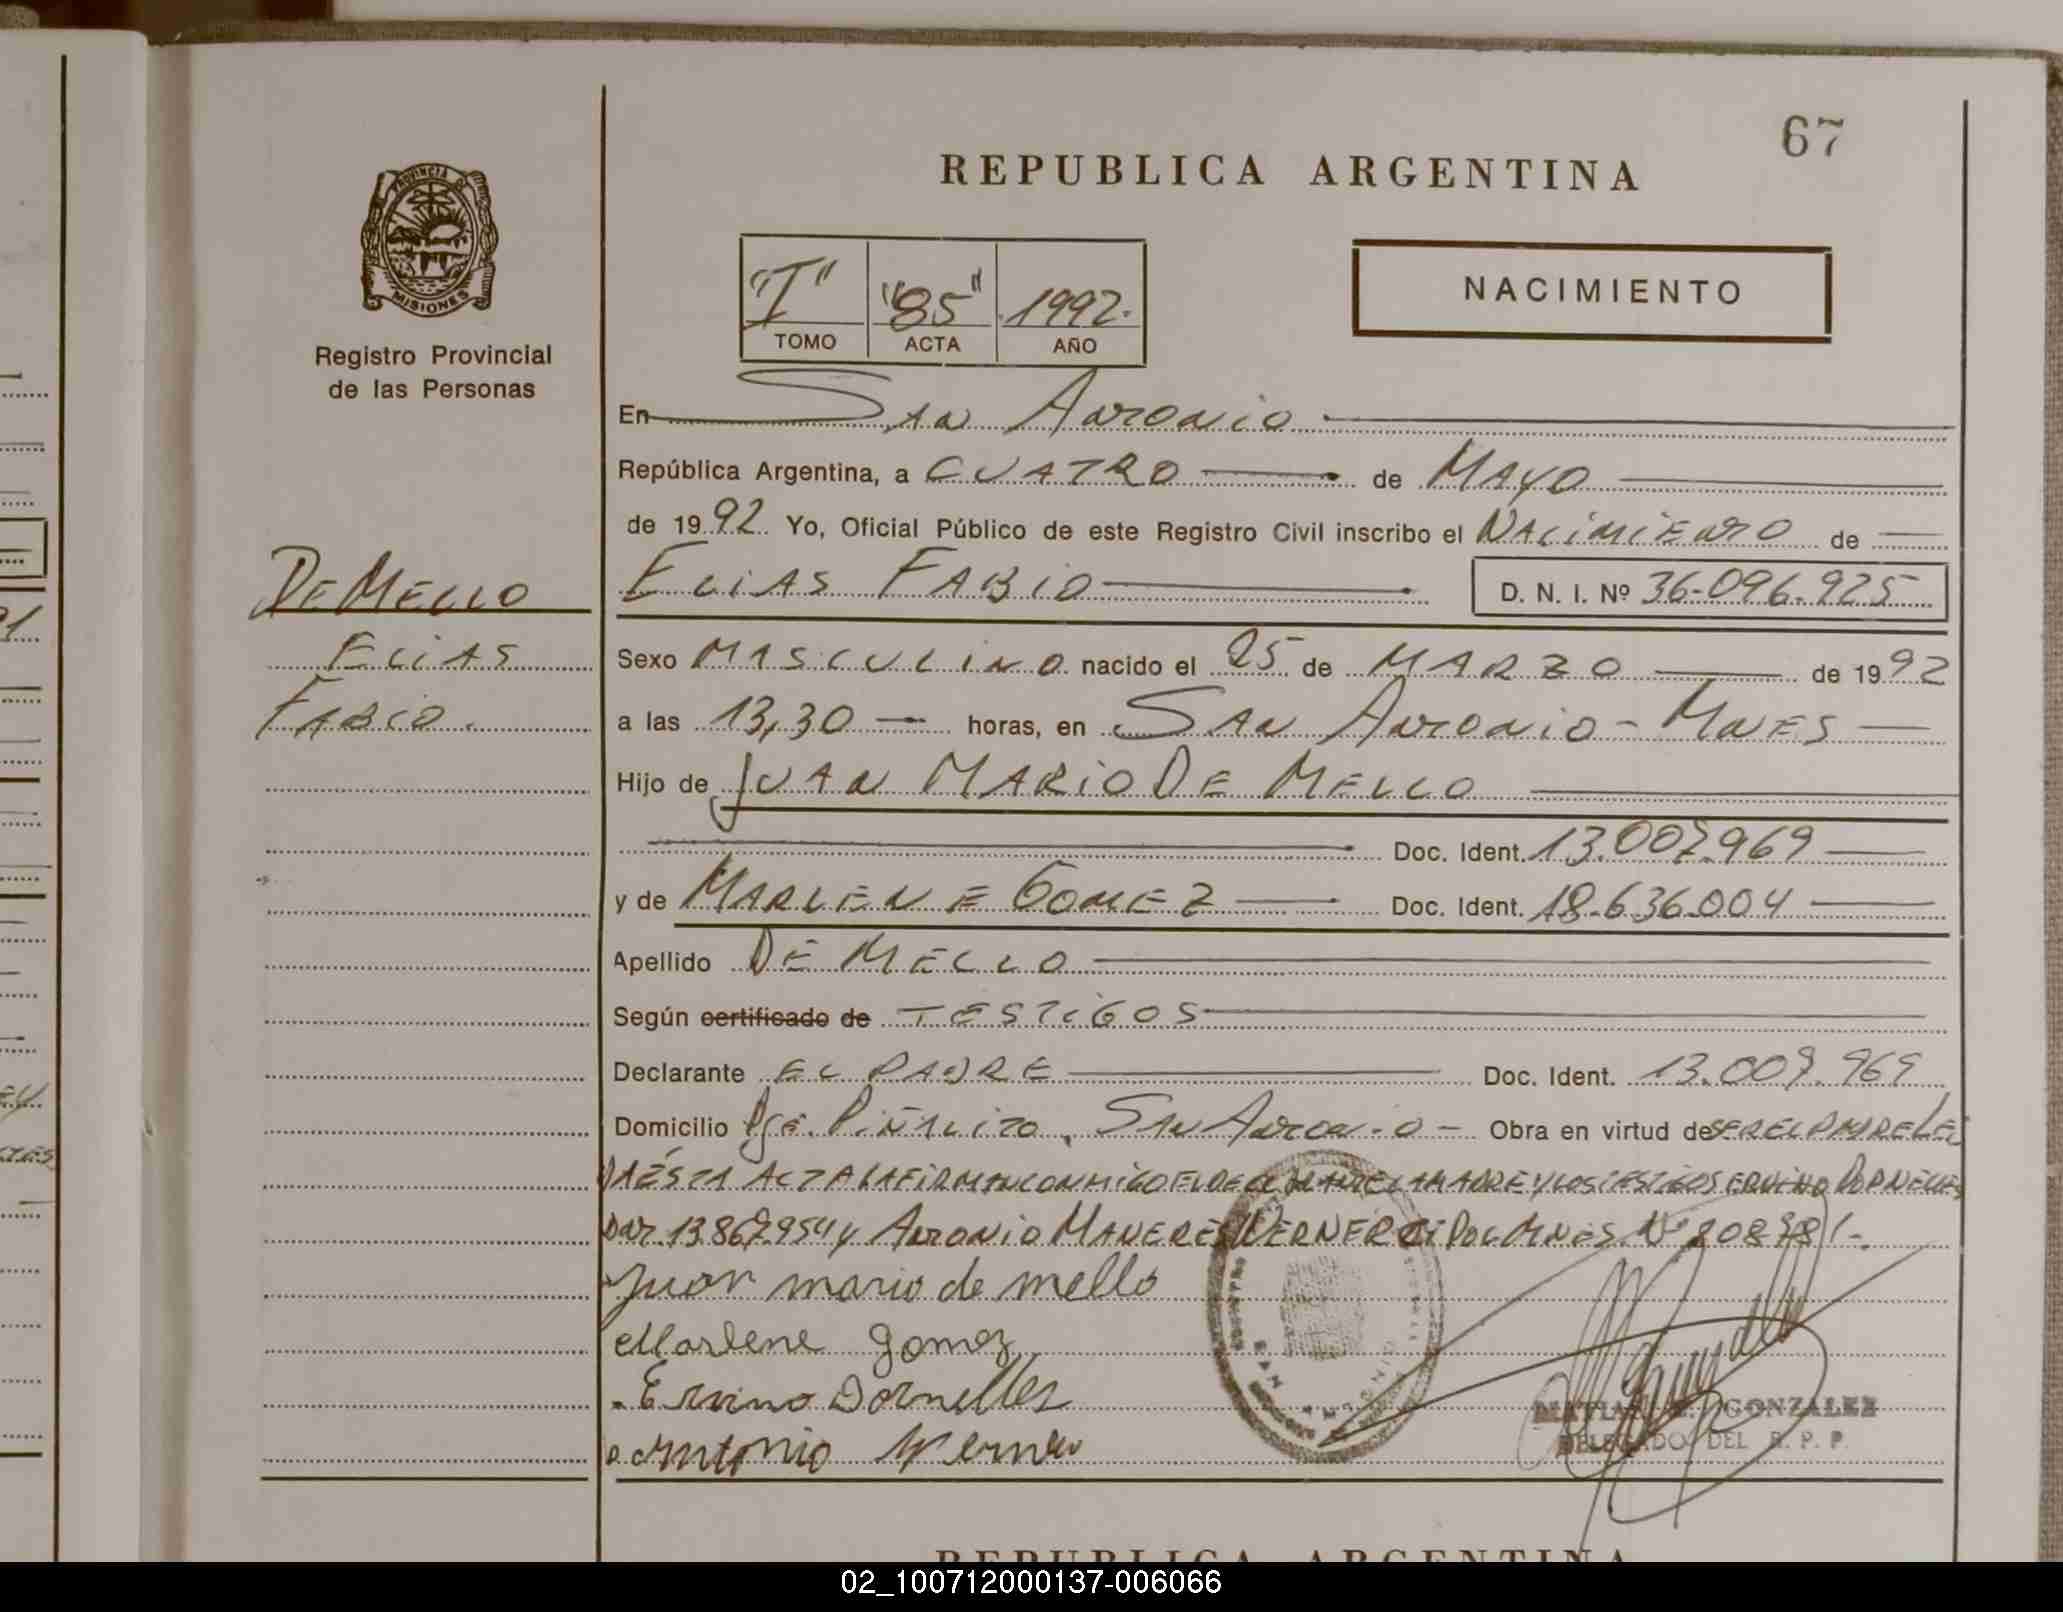 67
REPUBLICA ARGENTINA
PROVINCIA DE
MISIONES
Registro Provincial
de las Personas
"I" "85" 1992.
TOMO ACTA AÑO
NACIMIENTO
En San Antonio
República Argentina, a CUATRO de MAYO
de 1992 Yo, Oficial Público de este Registro Civil inscribo el NACIMIENTO de
DE MELLO
ELIAS FABIO D. N. I. Nº 36.096.925
ELIAS
Sexo MASCULINO nacido el 25 de MARZO de 1992
FABIO.
a las 13,30 horas, en SAN ANTONIO - MNES
Hijo de JUAN MARIO DE MELLO
Doc. Ident. 13.007.969
y de MARLENE GOMEZ Doc. Ident. 18.636.004
Apellido DE MELLO
Según certificado de TESTIGOS
Declarante EL PADRE Doc. Ident. 13.007.969
Domicilio Pje. Piñalito, San Antonio - Obra en virtud de SER EL PADRE LEI
DA ÉSTA ACTA LA FIRMAN CONMIGO EL DECLARANTE LA MADRE Y LOS TESTIGOS ERVINO DORNELLES
DNI 13.867.954 y ANTONIO MANERES WERNER CI POL MNES Nº 208781.-
Juan mario de mello
Marlene gomez
Ervino Dornelles
Antonio Werner
SAN ANTONIO
MATIAS GONZALEZ
DELEGADO DEL R. P. P.
REPUBLICA ARGENTINA
02_100712000137-006066